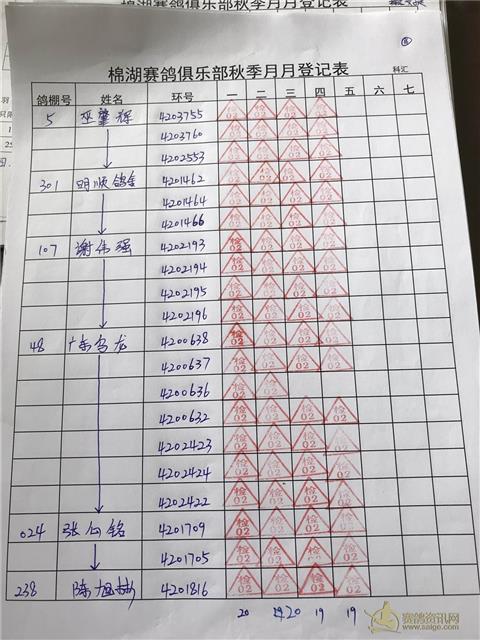 棉湖赛鸽俱乐部秋季月月登记表
棉湖赛鸽俱乐部秋季月月登记表
科汇
鸽棚号 姓名 环号 一 二 三 四 五 六 七
5 巫肇辉 4203755 检02 检02 检02 检02
4203760 检02 检02 检02 检02
4202553 检02 检02 检02 检02
301 明顺鸽舍 4201462 检02 检02 检02 检02
4201464 检02 检02 检02 检02
4201466 检02 检02 检02 检02
107 谢伟强 4202193 检02 检02 检02 检02
4202194 检02 检02 检02 检02
4202195 检02 检02 检02 检02
4202196 检02 检02 检02 检02
48 广东乌龙 4200638 检02 检02 检02 检02
4200637 检02 检02 检02 检02
4200636 检02 检02
4200632 检02 检02 检02 检02
4202423 检02 检02 检02 检02
4202424 检02 检02 检02 检02
4202422 检02 检02 检02 检02
024 张 铭 4201709 检02 检02 检02 检02
4201705 检02 检02 检02 检02
238 陈旭彬 4201816 检02 检02 检02 检02
20 20 19 19
赛鸽资讯网
www.saige.com